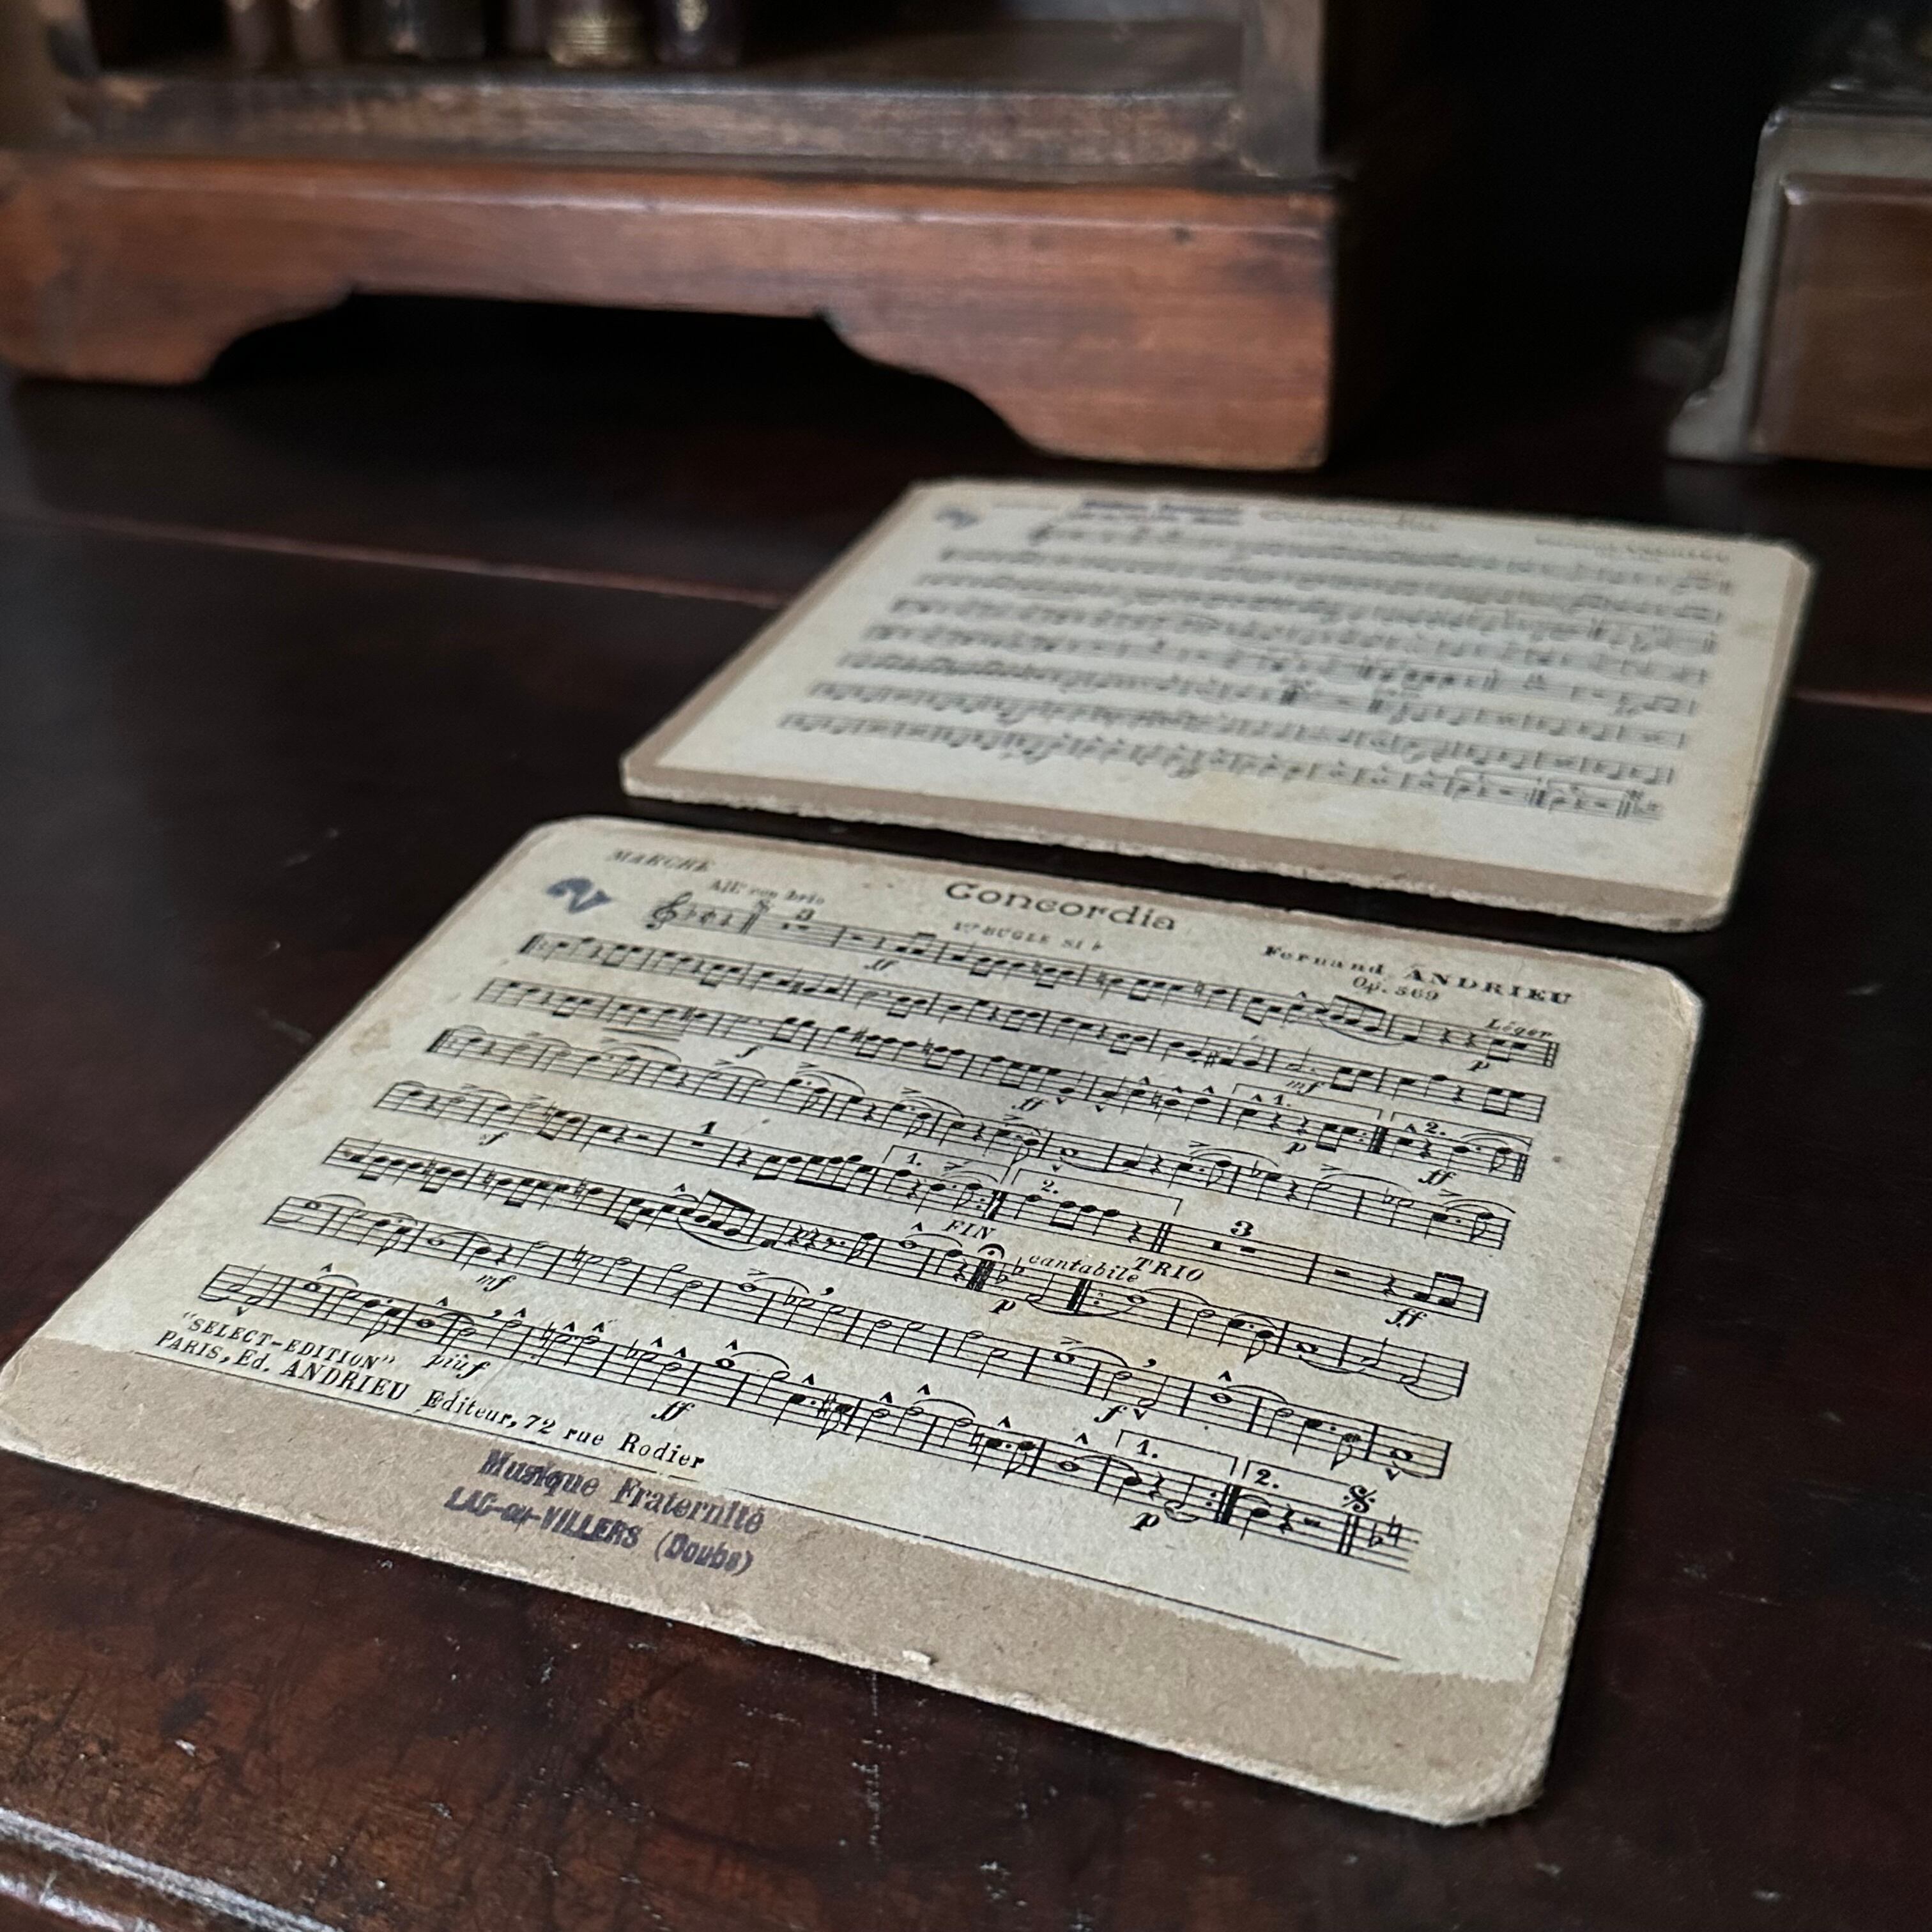 Concordia
MARCHE
Concordia
All.º con brio
1er BUGLE SI ♭
Fernand ANDRIEU
Op. 569
3
ff
Léger
p
mf
f
ff
1.
2.
p
ff
sf
1
1.
2.
3
ff
FIN
cantabile
TRIO
p
mf
f
più f
ff
1.
2.
p
"SELECT-EDITION"
PARIS, Ed. ANDRIEU Editeur, 72 rue Rodier
Musique Fraternité
LAC-ou-VILLERS (Doubs)